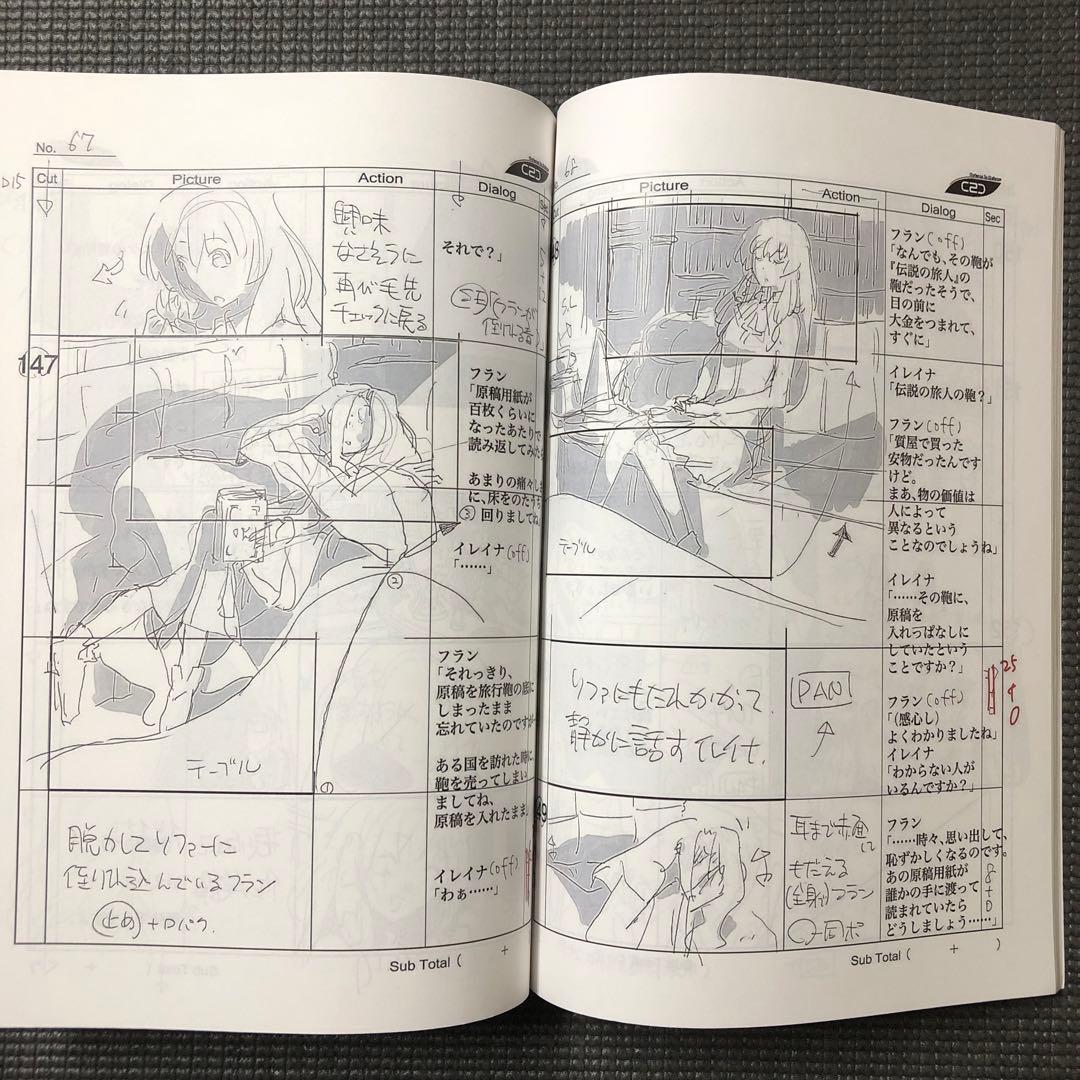 No. 67
D15
Cut
Picture
Action
Dialog
Sec
C2C
興味
なさそうに
再び毛先
チェックに戻る
それで？」
147
フラン
「原稿用紙が
百枚くらいに
なったあたりで
読み返してみた
あまりの痛々し
に、床をのたうち
③ 回りましてね
イレイナ(off)
「……」
②
フラン
「それっきり、
原稿を旅行鞄の底に
しまったまま
忘れていたのですが
ある国を訪れた時に
鞄を売ってしまい
ましてね、
原稿を入れたまま」
イレイナ(off)
「わぁ……」
テーブル
①
脱力してソファーに
倒れ込んでいるフラン
止め +口パク.
Sub Total ( +
68
Picture
Action
Dialog
Sec
C2C
フラン(off)
「なんでも、その鞄が
『伝説の旅人』の
鞄だったそうで、
目の前に
大金をつまれて、
すぐに」
イレイナ
「伝説の旅人の鞄？」
フラン(off)
「質屋で買った
安物だったんです
けど。
まあ、物の価値は
人によって
異なるという
ことなのでしょうね」
イレイナ
「……その鞄に、
原稿を
入れっぱなしに
していたという
ことですか？」
フラン(off)
「(感心し)
よくわかりましたね」
イレイナ
「わからない人が
いるんですか？」
25
+
0
テーブル
ソファにもたれかかって
静かに話すイレイナ.
PAN
49
耳まで赤面して
もだえる
(全身)フラン
フラン
「……時々、思い出して、
恥ずかしくなるのです。
あの原稿用紙が
誰かの手に渡って
読まれていたら
どうしましょう……」
8
+
0
Sub Total ( + )